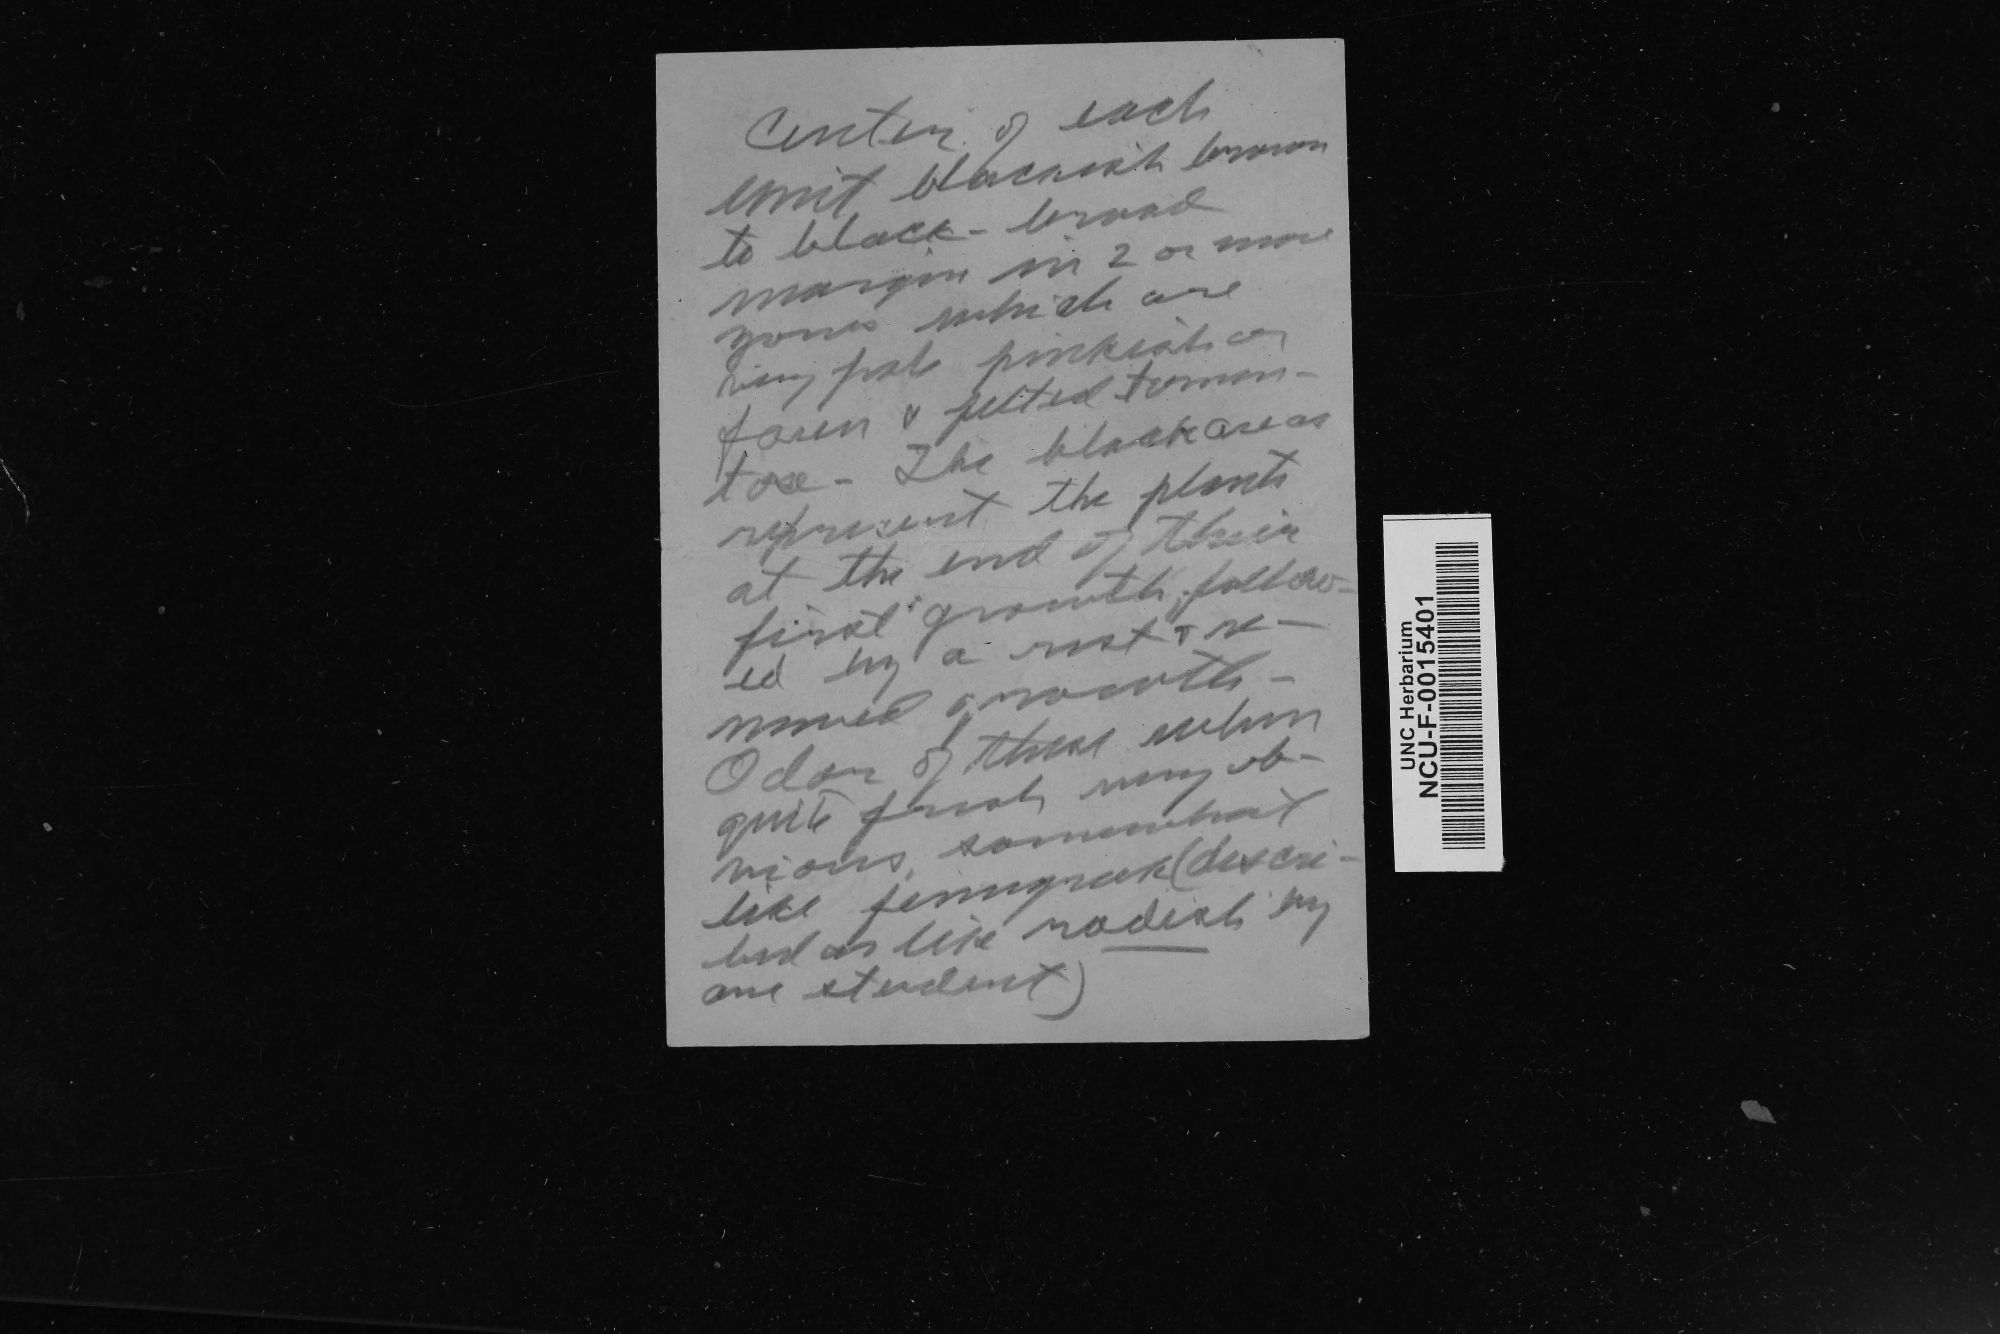 Center of each
unit blackish brown
to black - broad
margin in 2 or more
zones which are
very pale pinkish or
fawn & felted tomen-
tose - The black areas
represent the plants
at the end of their
first growth, follow-
ed by a rest & re-
newed growth -
Odor of these when
quite fresh very ob-
vious, somewhat
like fenugreek (descri-
bed as like radish by
one student)
UNC Herbarium
NCU-F-0015401